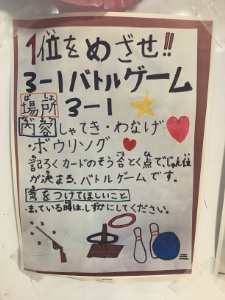 1位をめざせ!!
3-1バトルゲーム
場所 3-1
内容 しゃてき・わなげ
・ボウリング
記ろくカードのそう合とく点でじゅん位
が決まる、バトルゲームです。
気をつけてほしいこと
・まっている時は、しずかにしてください。
三